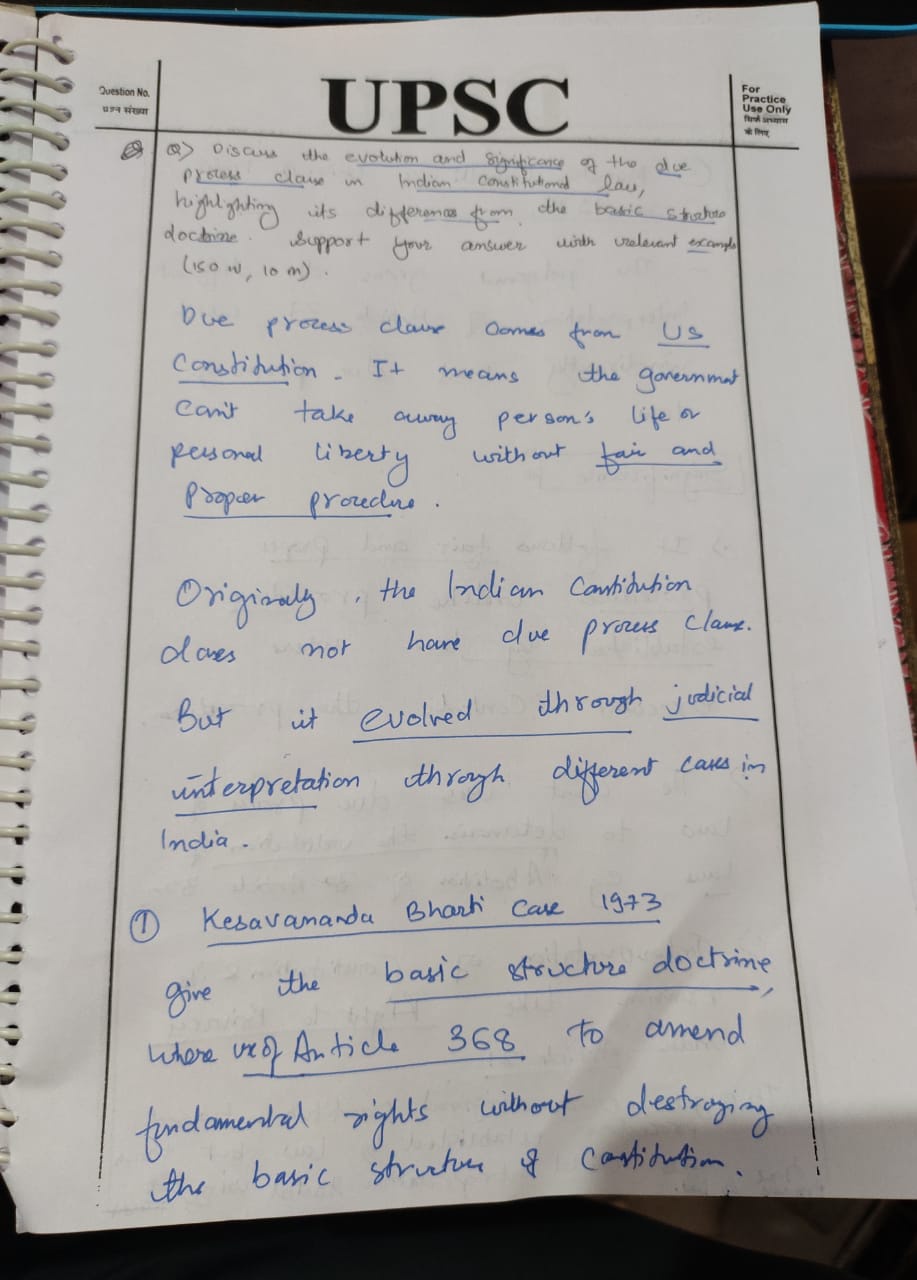 Question No.
प्रश्न संख्या
UPSC
For
Practice
Use Only
सिर्फ अभ्यास
के लिए
Q) Discuss the evolution and significance of the due
process clause in Indian Constitutional law,
highlighting its difference from the basic structure
doctrine. Support your answer with relevant example
(150 w, 10 m).
Due process clause comes from US
Constitution. It means the government
can't take away person's life or
personal liberty without fair and
proper procedure.
Originally, the Indian Constitution
does not have due process clause.
But it evolved through judicial
interpretation through different cases in
India.
① Kesavananda Bharti Case 1973
give the basic structure doctrine,
where use of Article 368 to amend
fundamental rights without destroying
the basic structure of Constitution.